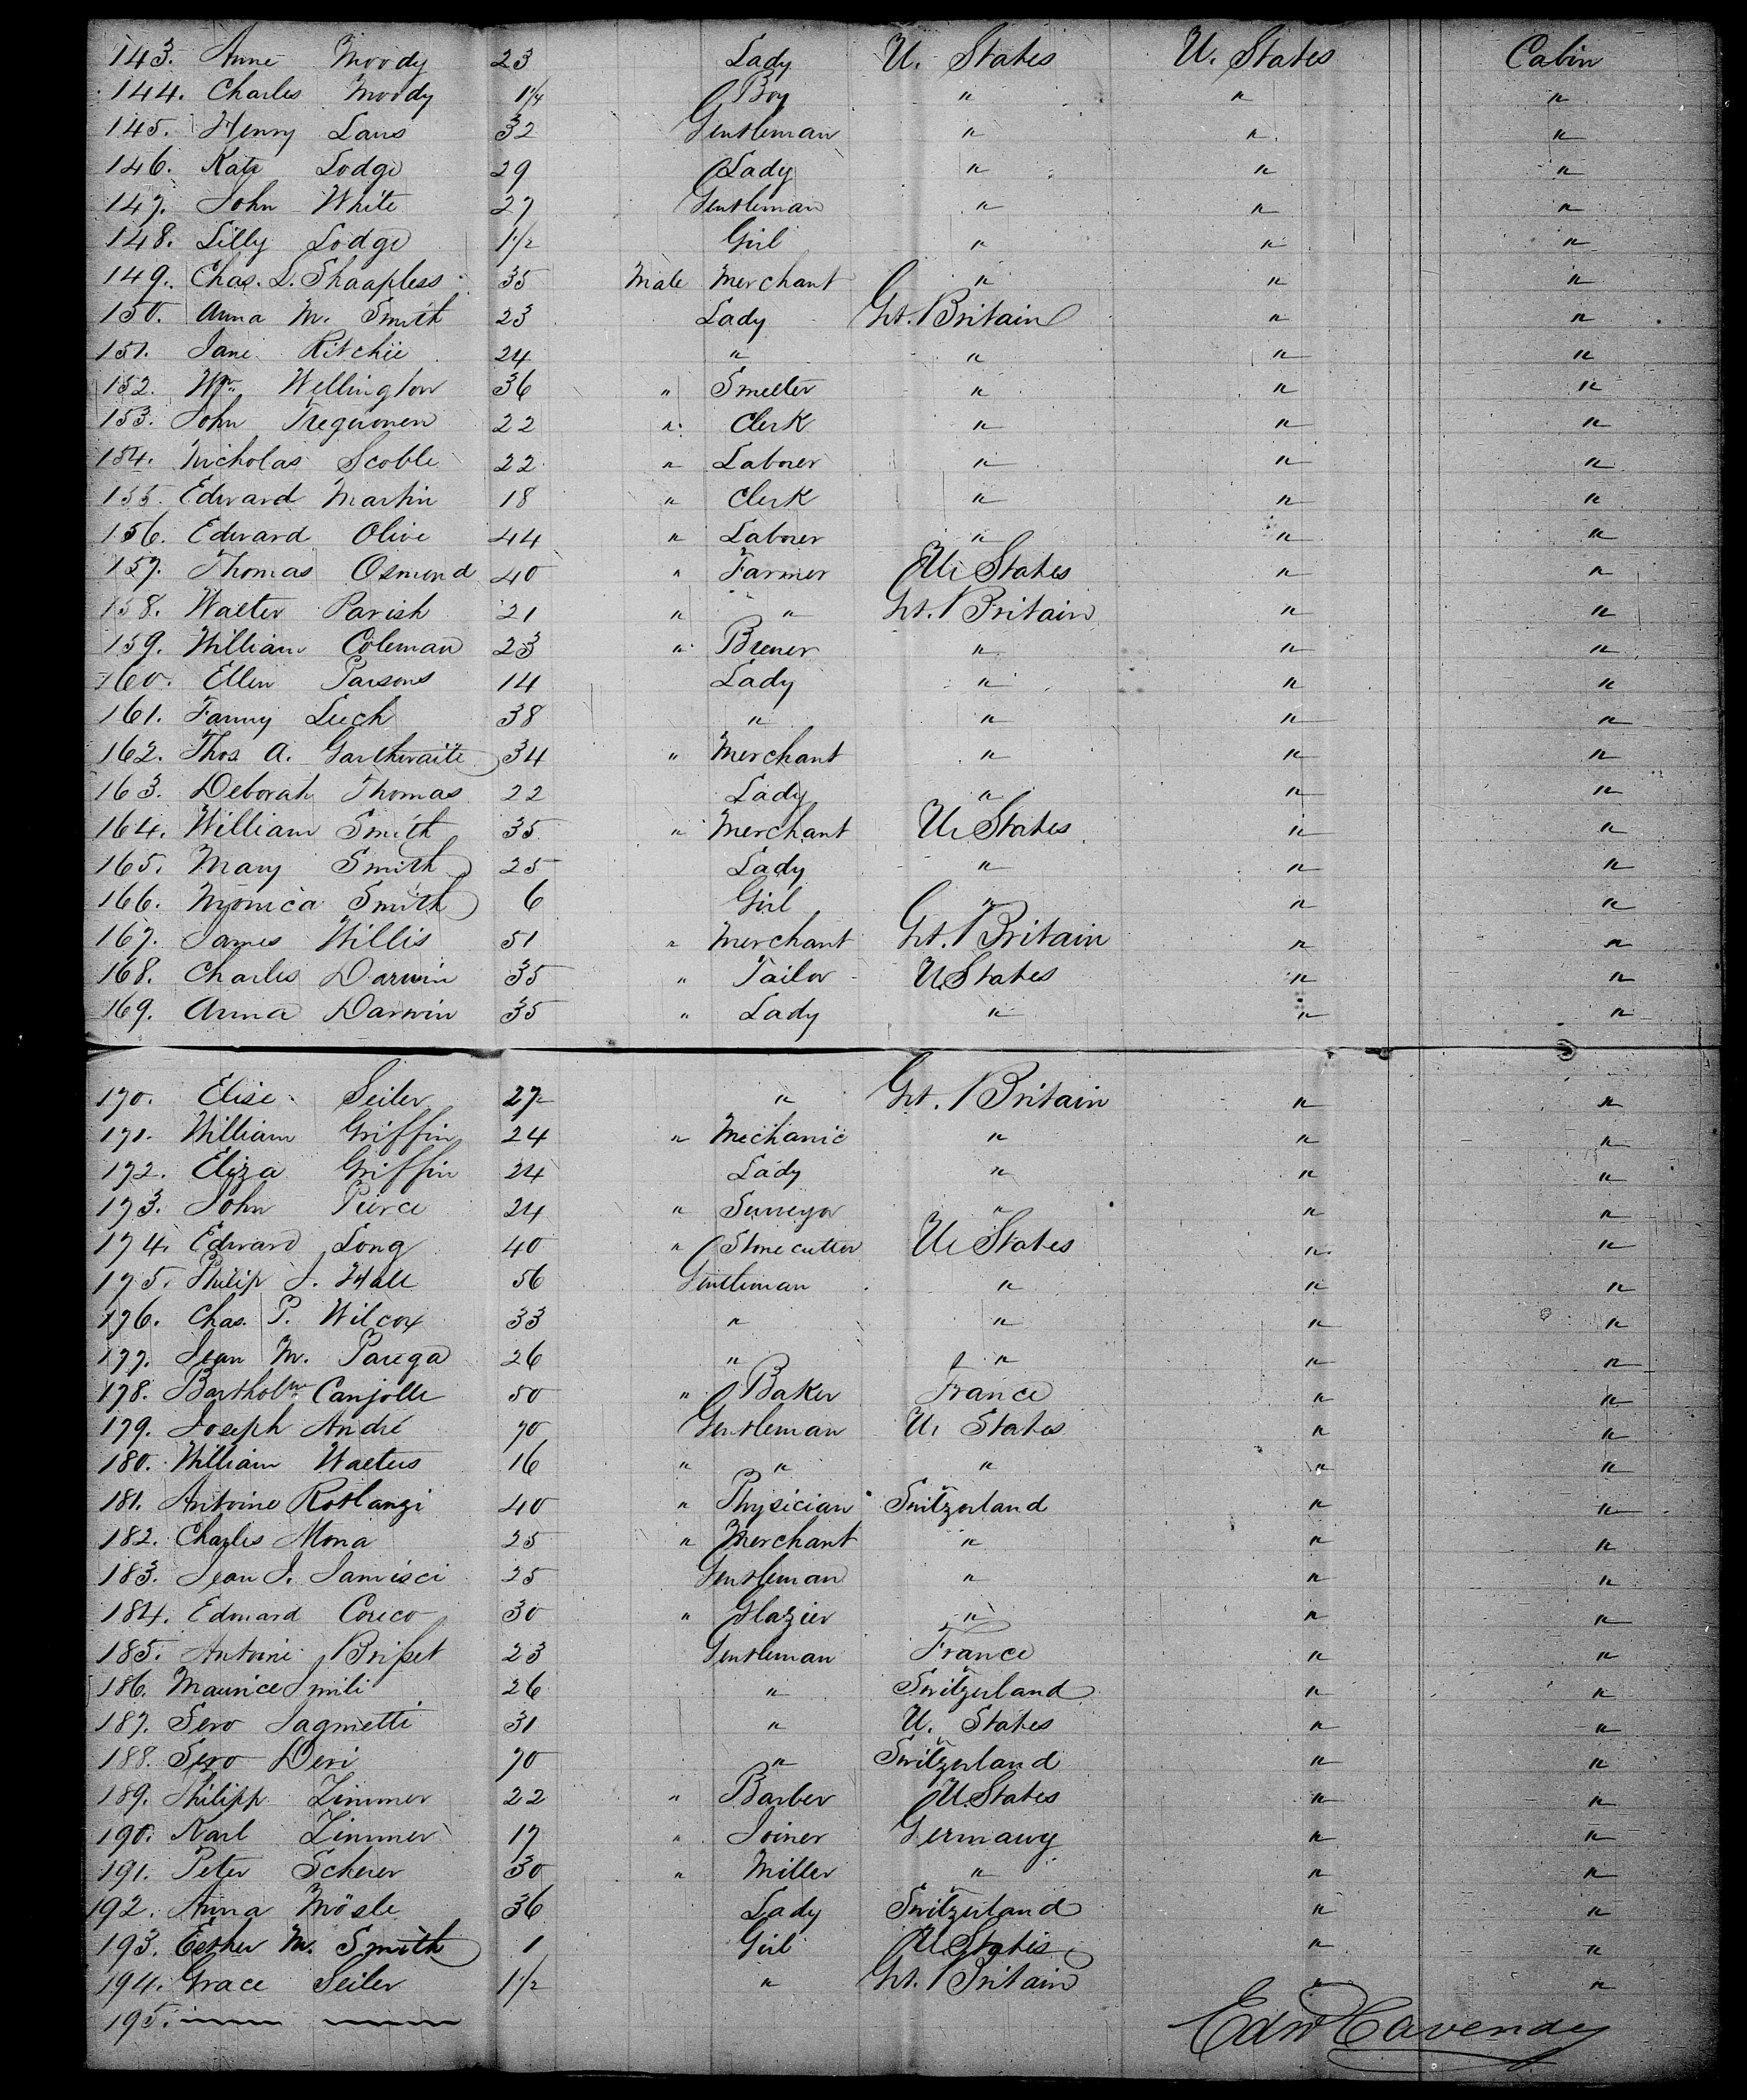 143. Anne Moody 23 Lady U. States U. States Cabin
144. Charles Moody 1 1/4 Boy " " "
145. Henry Laws 32 Gentleman " " "
146. Kate Lodge 29 Lady " " "
147. John White 27 Gentleman " " "
148. Lilly Lodge 1 1/2 Girl " " "
149. Chas. L. Shaapless 35 Male Merchant " " "
150. Anna M. Smith 23 Lady Gt. Britain " "
151. Jane Ritchie 24 " " " "
152. Wm. Wellington 36 " Smelter " " "
153. John 22 " Clerk " " "
154. Nicholas Scoble 22 " Laborer " " "
155. Edward Martin 18 " Clerk " " "
156. Edward Olive 44 " Laborer " " "
157. Thomas Osmond 40 " Farmer U. States " "
158. Walter Parish 21 " " Gt. Britain " "
159. William Coleman 23 " Brewer " " "
160. Ellen Parsons 14 Lady " " "
161. Fanny Luch 38 " " " "
162. Thos. A. Garthwaite 34 " Merchant " " "
163. Deborah Thomas 22 Lady " " "
164. William Smith 35 " Merchant U. States " "
165. Mary Smith 25 Lady " " "
166. Monica Smith 6 Girl " " "
167. James Willis 51 " Merchant Gt. Britain " "
168. Charles Darwin 35 " Tailor U. States " "
169. Anna Darwin 35 " Lady " " "
170. Elise Seiler 27 " Gt. Britain " "
171. William Griffin 24 " Mechanic " " "
172. Eliza Griffin 24 Lady " " "
173. John Pierce 24 " Surveyor " " "
174. Edward Long 40 " Stone cutter U. States " "
175. Philip J. Hall 56 Gentleman " " "
176. Chas. P. Wilcox 33 " " " "
177. Jean M. Parega 26 " " " "
178. Bartholw Canjolle 50 " Baker France " "
179. Joseph André 70 Gentleman U. States " "
180. William Walters 16 " " " " "
181. Antoine 40 " Physician Switzerland " "
182. Charles Mona 25 " Merchant " " "
183. Jean J. 25 Gentleman " " "
184. Edouard Corico 30 " Glazier " " "
185. Antoine Brisset 23 Gentleman France " "
186. Maurice Smili 26 " Switzerland " "
187. Sero Jagmetti 31 " U. States " "
188. Sero Devi 70 " Switzerland " "
189. Philipp Zimmer 22 " Barber U. States " "
190. Karl Zimmer 17 " Joiner Germany " "
191. Peter Scherer 30 " Miller " " "
192. Anna Mösle 36 Lady Switzerland " "
193. Esther M. Smith 1 Girl U. States " "
194. Grace Seiler 1 1/2 " Gt. Britain " "
195.
Edw Cavendy